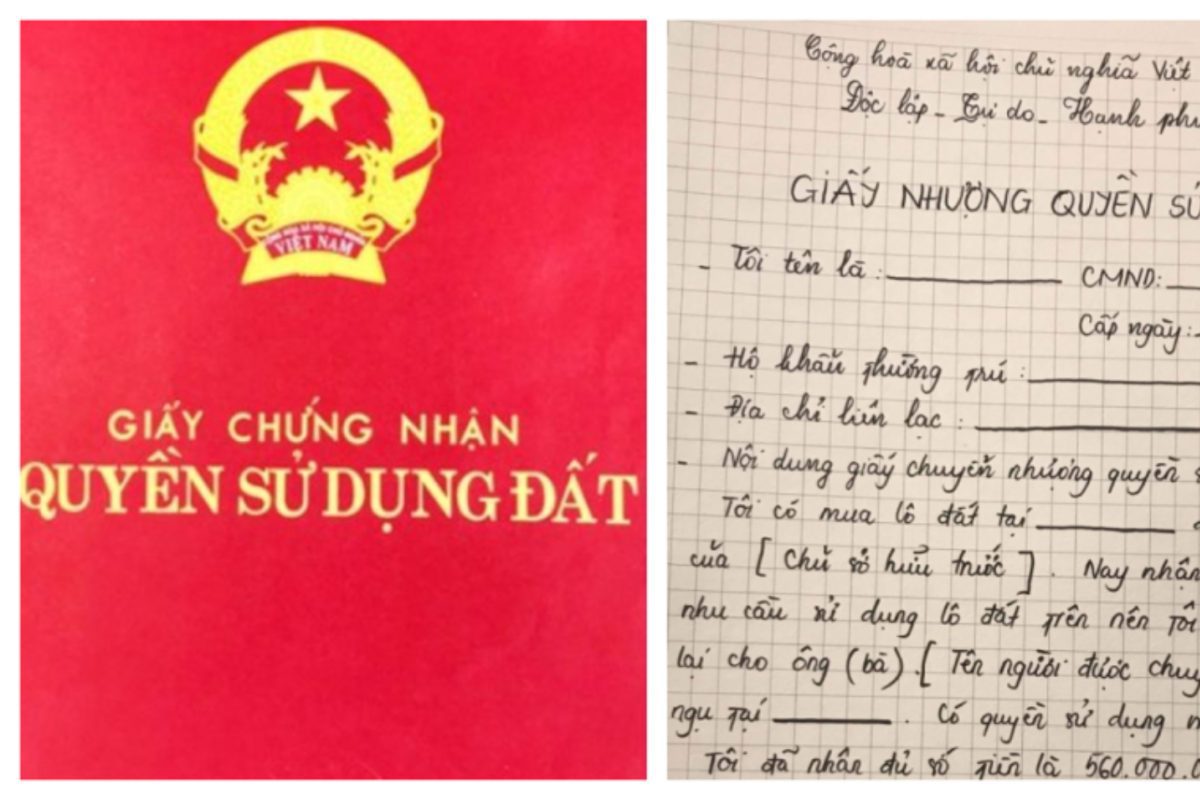 CỘNG HÒA XÃ HỘI CHỦ NGHĨA
VIỆT NAM
GIẤY CHỨNG NHẬN
QUYỀN SỬ DỤNG ĐẤT
Cộng hoà xã hội chủ nghĩa Việt
Độc lập - Tự do - Hạnh phú
GIẤY NHƯỢNG QUYỀN SỬ
- Tôi tên là : CMND:
Cấp ngày :
- Hộ khẩu thường trú :
- Địa chỉ liên lạc :
- Nội dung giấy chuyển nhượng quyền s
Tôi có mua lô đất tại
của [ Chủ sở hữu trước ] . Nay nhận
nhu cầu sử dụng lô đất trên nên tôi
lại cho ông (bà) [ Tên người được chuy
ngụ tại . Có quyền sử dụng m
Tôi đã nhận đủ số tiền là 560.000.0